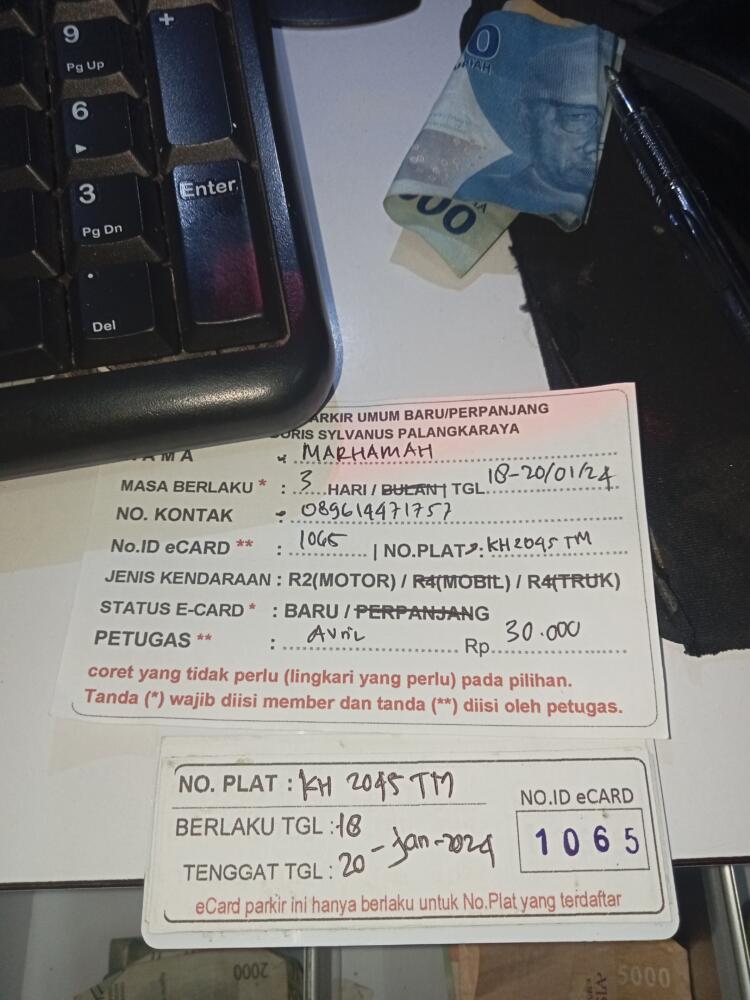 9
Pg Up
+
6
3
Pg Dn
Enter
Del
0
000
ARKIR UMUM BARU/PERPANJANG
SYLVANUS PALANGKARAYA
MARHAMAH
MASA BERLAKU * : 3 HARI / BULAN | TGL. 18-20/01/24
NO. KONTAK : 089614471757
No.ID eCARD ** : 1065 | NO.PLAT : KH 2045 TM
JENIS KENDARAAN : R2(MOTOR) / R4(MOBIL) / R4(TRUK)
STATUS E-CARD * : BARU / PERPANJANG
PETUGAS ** : AVRIL Rp. 30.000
coret yang tidak perlu (lingkari yang perlu) pada pilihan.
Tanda (*) wajib diisi member dan tanda (**) diisi oleh petugas.
NO. PLAT : KH 2045 TM
NO.ID eCARD
BERLAKU TGL : 18
1065
TENGGAT TGL : 20 - Jan - 2024
eCard parkir ini hanya berlaku untuk No.Plat yang terdaftar
2000
5000